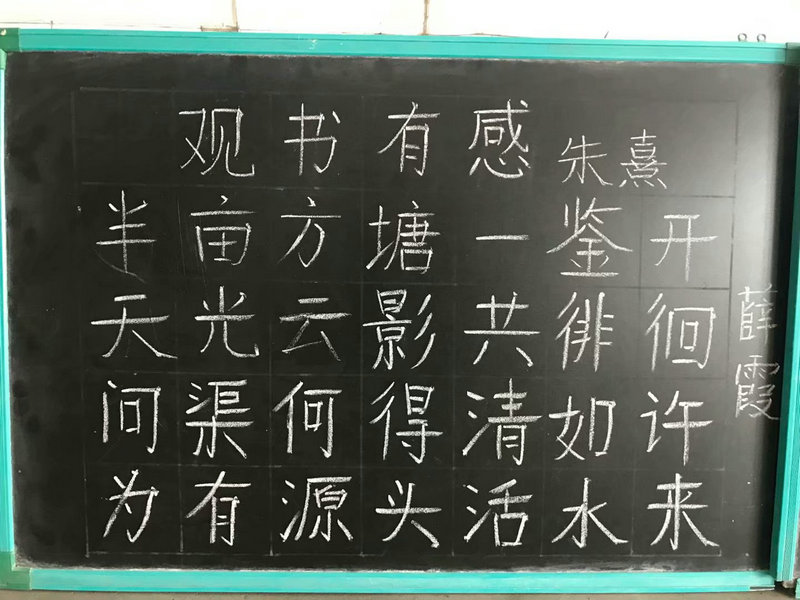 观书有感 朱熹
半亩方塘一鉴开
天光云影共徘徊
问渠何得清如许
为有源头活水来
薛霞